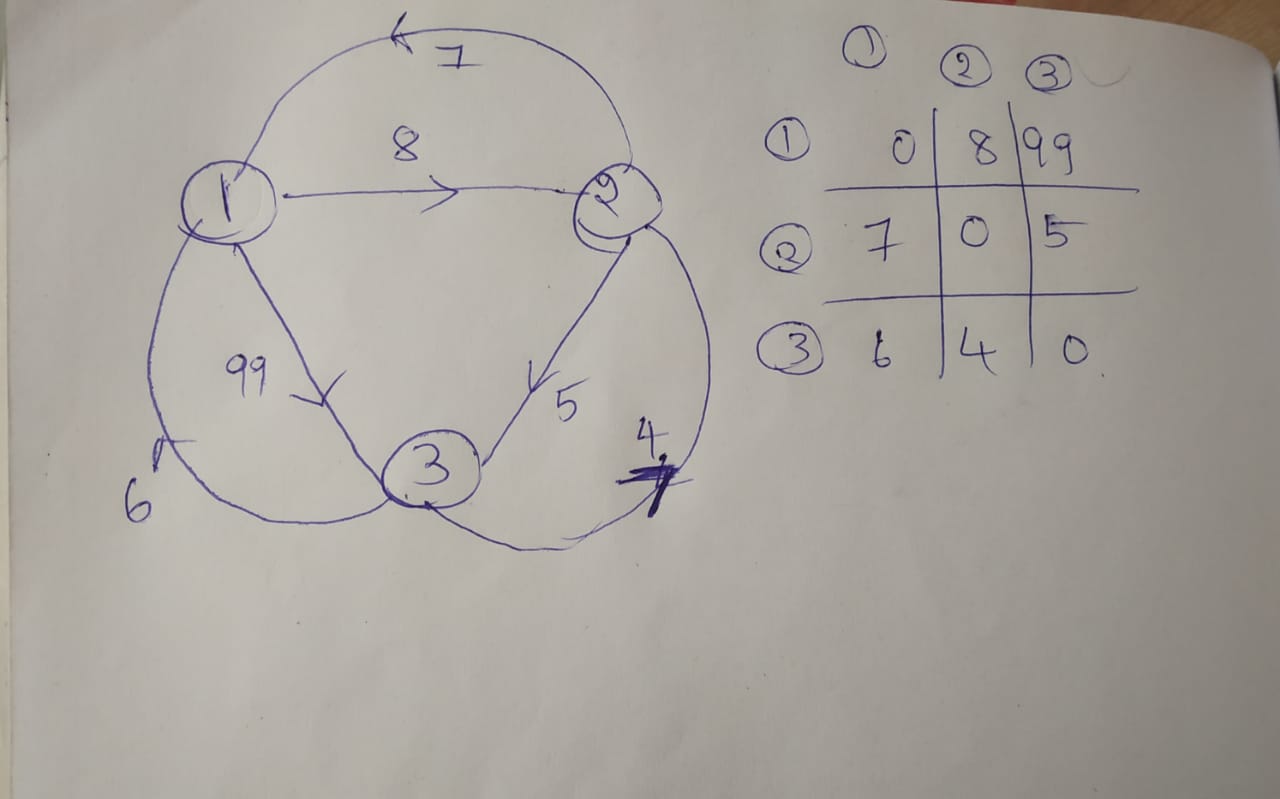 7
8
1
2
99
5
3
4
6
1 2 3
1 0 8 99
2 7 0 5
3 6 4 0